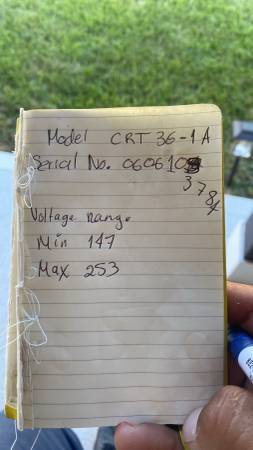 Model CRT 36-1A
Serial No. 060610
3784
Voltage range
Min 147
Max 253